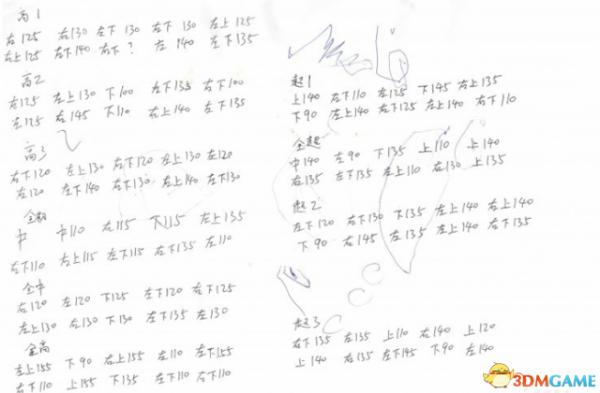 高1
右125 右130 左下130 右下130 左上125
右上125 右下140 右下? 左140 左下135
高2
右125 左上130 下100 左下135 右下100
左125 右145 下110 右上140 左下135
高3
右下120 左上130 右下120 左上130 左120
右120 左下140 右下130 左上140 左下130
全
中 中110 右115 下115 左上135
右下110 右上115 左下115 右下135 左110
全中
右120 左120 下125 左下120 左下125
左上130 左130 下130 左下135 左130
全高
左上155 下90 右上155 左110 左下155
右下110 上155 下135 左下110 右下110
超1
上140 右下110 左125 下145 右上135
下90 左上140 右下125 左上140 右下110
全超
中140 左90 下135 上110 上140
右135 左下135 左上110 右130 上135
超2
左下120 右下130 下135 左上140 右上140
下90 右145 左135 左上140 右下135
超3
右下135 左135 上110 右140 上120
上140 右135 左下145 下90 左140
3DMGAME